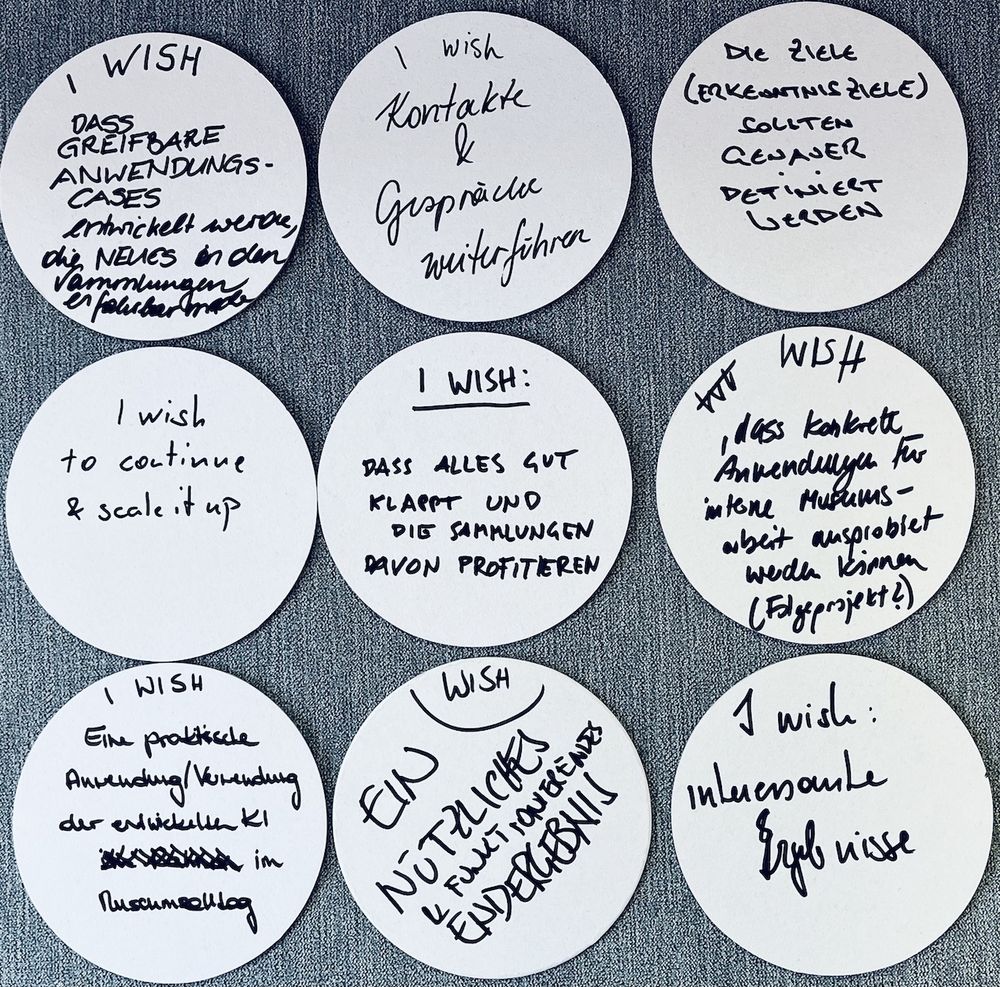 I WISH
DASS
GREIFBARE
ANWENDUNGS-
CASES
entwickelt werden,
die NEUES in den
Sammlungen
erfahrbar
I wish
Kontakte
&
Gespräche
weiterführen
DIE ZIELE
(ERKENNTNISZIELE)
SOLLTEN
GENAUER
DEFINIERT
WERDEN
I wish
to continue
& scale it up
I WISH:
DASS ALLES GUT
KLAPPT UND
DIE SAMMLUNGEN
DAVON PROFITIEREN
WISH
, dass konkrete
Anwendungen für
interne Museums-
arbeit ausprobiert
werden können
(Folgeprojekt?)
I WISH
Eine praktische
Anwendung/Verwendung
der entwickelten KI
im
I WISH
EIN
NÜTZLICHES
& FUNKTIONIERENDES
ENDERGEBNIS
I wish:
interessante
Ergebnisse